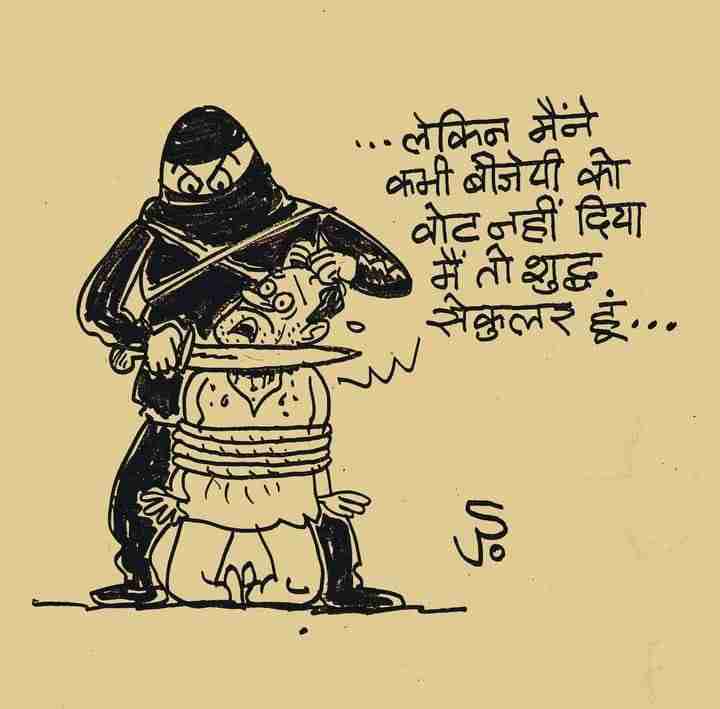 ...लेकिन मैंने
कभी बीजेपी को
वोट नहीं दिया
मैं तो शुद्ध
सेकुलर हूं...